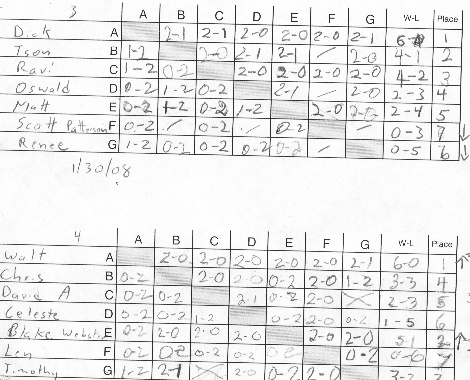 3 A B C D E F G W-L Place
Dick A 2-1 2-1 2-0 2-0 2-0 2-1 6- 1
Tson B 1-2 2-0 2-1 2-1 / 2-0 4-1 2
Ravi C 1-2 0-2 2-0 2-0 2-0 2-0 4-2 3
Oswald D 0-2 1-2 0-2 2-1 / 2-0 2-3 4
Matt E 0-2 1-2 0-2 1-2 2-0 2-0 2-4 5
Scott Patterson F 0-2 / 0-2 / 0-2 / 0-3 7
Renee G 1-2 0-2 0-2 0-2 0-2 / 0-5 6
1/30/08
4 A B C D E F G W-L Place
Walt A 2-0 2-0 2-0 2-0 2-0 2-1 6-0 1
Chris B 0-2 2-0 2-0 0-2 2-0 1-2 3-3 4
David A C 0-2 0-2 2-1 0-2 2-0 2-3 5
Celeste D 0-2 0-2 1-2 0-2 2-0 0-2 1-5 6
Blake Webster E 0-2 2-0 2-0 2-0 2-0 2-0 5-1 2
Len F 0-2 0-2 0-2 0-2 0-2 0-2 0-6 7
Timothy G 1-2 2-1 2-0 0-2 2-0